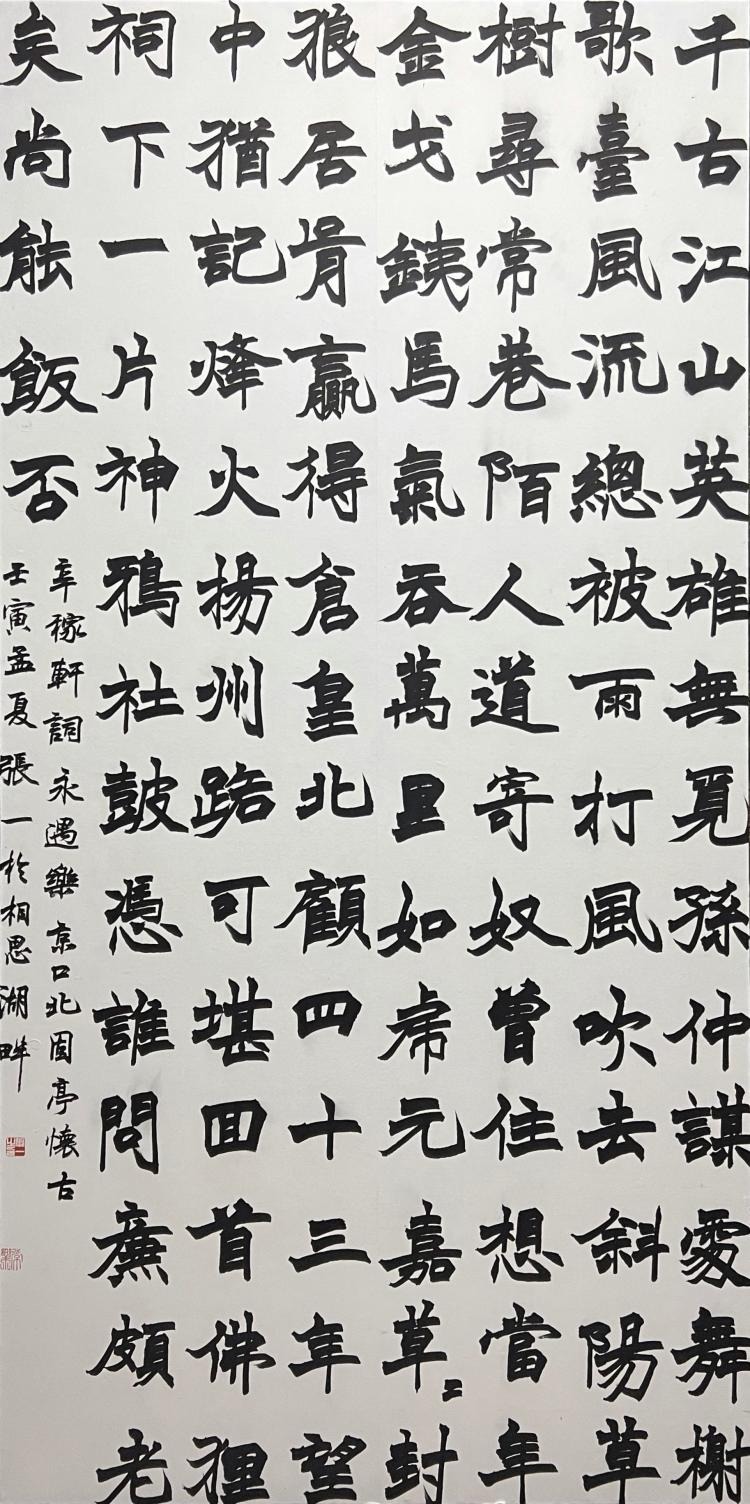 千古江山英雄無覓孫仲謀處舞榭
歌臺風流總被雨打風吹去斜陽草
樹尋常巷陌人道寄奴曾住想當年
金戈銕馬氣吞萬里如虎元嘉草〻封
狼居胥贏得倉皇北顧四十三年望
中猶記烽火揚州路可堪回首佛狸
祠下一片神鴉社鼓憑誰問廉頗老
矣尚能飯否
辛稼軒詞永遇樂京口北固亭懷古
壬寅孟夏張一於相思湖畔